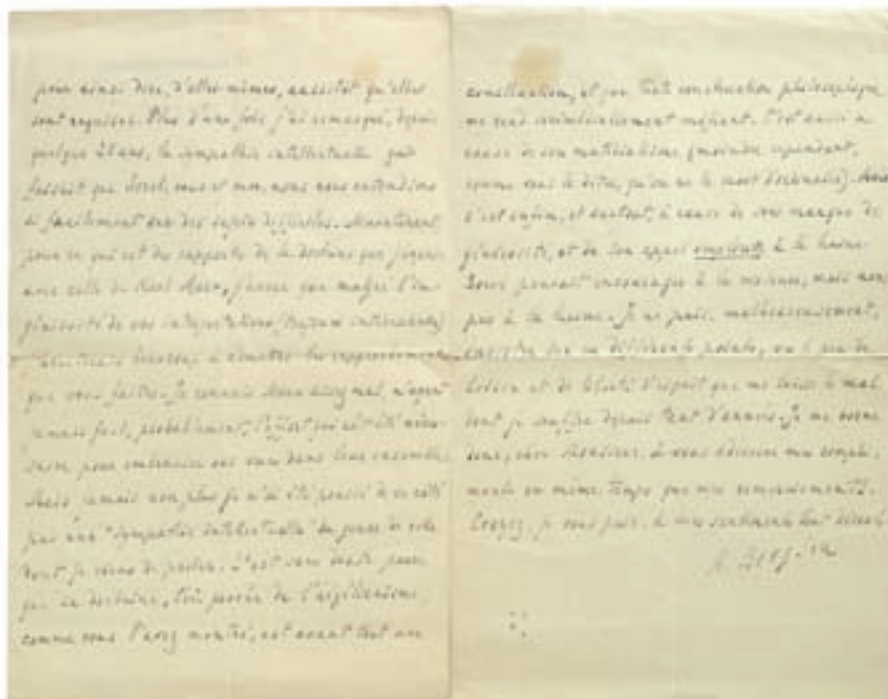 pour ainsi dire, d'elles-mêmes, aussitôt qu'elles
sont requises. Plus d'une fois j'ai remarqué, depuis
quelque 20 ans, la sympathie intellectuelle qui
faisait que Sorel, vous et moi, nous nous entendions
si facilement sur des sujets difficiles. Maintenant,
pour ce qui est des rapports de la doctrine que
avec celle de Karl Marx, j'avoue que malgré l'in-
géniosité de vos interprétations (toujours intéressantes)
beaucoup à admettre les rapprochements
que vous faites. Je connais Marx assez mal, n'ayant
jamais fait, probablement, l'effort qui eût été néces-
saire pour embrasser ses vues dans leur ensemble.
Mais jamais non plus je n'ai été poussé à ce côté
par une "sympathie intellectuelle" du genre de celle
dont je viens de parler. C'est sans doute parce
que sa doctrine, très proche de l'hégélianisme,
comme vous l'avez montré, est avant tout une
construction, et que toute construction philosophique
me rend méfiant. C'est aussi à
cause de son matérialisme (moindre cependant,
comme vous le dites, qu'on ne le croit d'ordinaire). Mais
c'est enfin, et surtout, à cause de son manque de
générosité, et de son appel à la haine.
Sorel pouvait encourager à la violence, mais non
pas à la haine. Je ne puis, malheureusement,
insister sur ces différents points, vu le peu de
loisir et de liberté d'esprit que me laisse le mal
dont je souffre depuis tant d'années. Je me borne
donc, cher Monsieur, à vous adresser mes compli-
ments en même temps que mes remerciements.
Croyez, je vous prie, à mes sentiments bien dévoués
H. Bergson